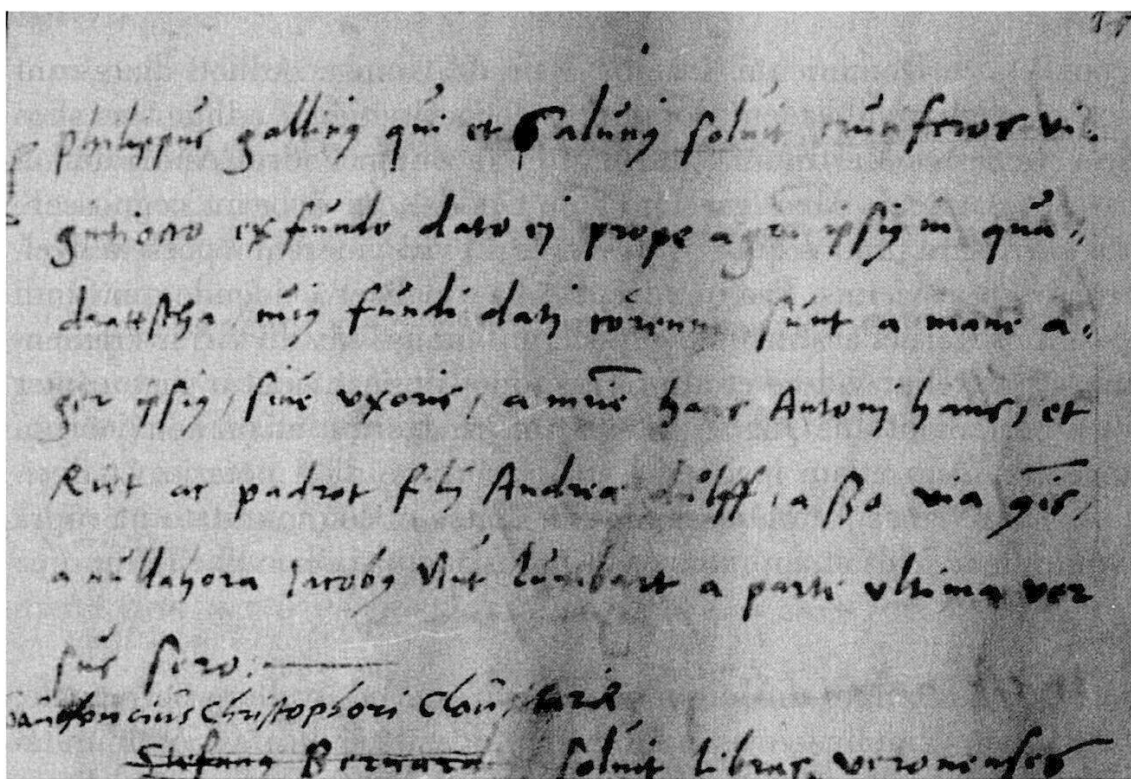 philippus gallinus qui et Salunus soluit crunferos vi-
gintiocto ex fundo dato ej prope agrum ipsius in qua-
drattscha, cuius fundi dati coherentiae sunt a mane a-
ger ipsius, siue vxoris, a meridie hans Antonj hans, et
Riet ac padrot filij Andreae dulff, a sero via
a nullahora Jacobus Nut Lumbart a parte vltima ver
sus sero.
Christophori
Stefanus Bernard soluit libras veronenses